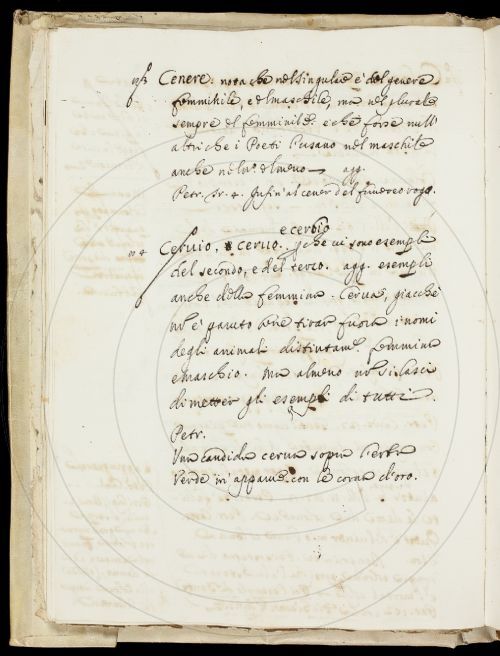 Cenere. nota che nel singulare è del genere
femminile, e del maschile, ma nel plurale
sempre del femminile. e che forse null'
altri che i Poeti l'usano nel maschile
anche nel nº. del meno — agg.
Petr. Tr. 4. Infin' al cener del funereo rogo.
e cerbio
Ceruio, e ceruo. che ui sono esempli
del secondo, e del terzo. agg. esempli
anche della femmina. Cerua, giacchè
nō è paruto bene tirar fuora i nomi
degli animali distintamᵉ. femmina
e maschio. Ma almeno nō si lasci
di metter gli esempli di tutti.
Petr.
Una candida cerua sopra l'erba
Verde m'apparue con le corna d'oro.